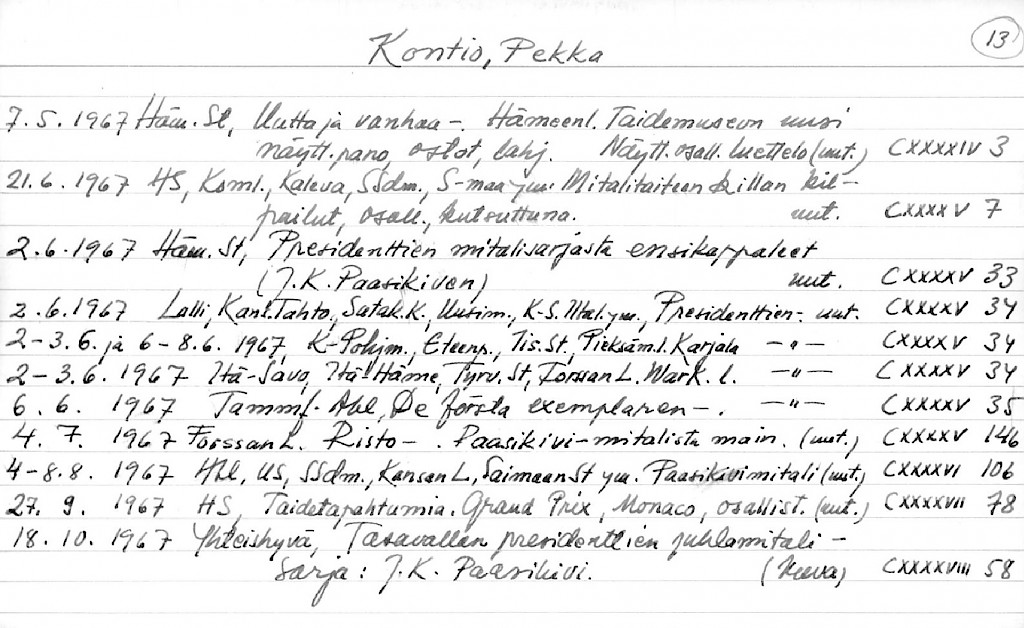 13
Kontio, Pekka
7.5.1967 Häm. St, Uutta ja vanhaa -. Hämeenl. Taidemuseon uusi
näytt. pano, ostot, lahj. Näytt. osall. luettelo (uut.) CXXXXIV 3
21.6.1967 HS, Koml., Kaleva, SSdm., S-maa ym. Mitalitaiteen killan kil-
pailut, osall., kutsuttuna. uut. CXXXXV 7
2.6.1967 Häm. St, Presidenttien mitalisarjasta ensikappaleet
(J.K. Paasikiven) uut. CXXXXV 33
2.6.1967 Lalli, Kans. Tahto, Satak. K., Uusim., K-S. Iltal. ym., Presidenttien-. uut. CXXXXV 34
2-3.6. ja 6-8.6. 1967, K-Pohjm., Eteenp., Iis. St, Pieksäm. l. Karjala —"— CXXXXV 34
2-3.6. 1967 Itä-Savo, Itä Häme, Tyrv. St, Forssan L. Wark. l. —"— CXXXXV 34
6.6. 1967 Tammf. Abl, De första exemplaren -. —"— CXXXXV 35
4.7. 1967 Forssan L. Risto - . Paasikivi-mitalista main. (uut.) CXXXXV 146
4-8.8. 1967 Hbl, US, SSdm., Kansan L, Saimaan St ym. Paasikivimitali (uut.) CXXXXVI 106
27.9. 1967 HS, Taidetapahtumia. Grand Prix, Monaco, osallist. (uut.) CXXXXVII 78
18.10. 1967 Yhteishyvä, Tasavallan presidenttien juhlamitali-
sarja: J.K. Paasikivi. (kuva) CXXXXVIII 58